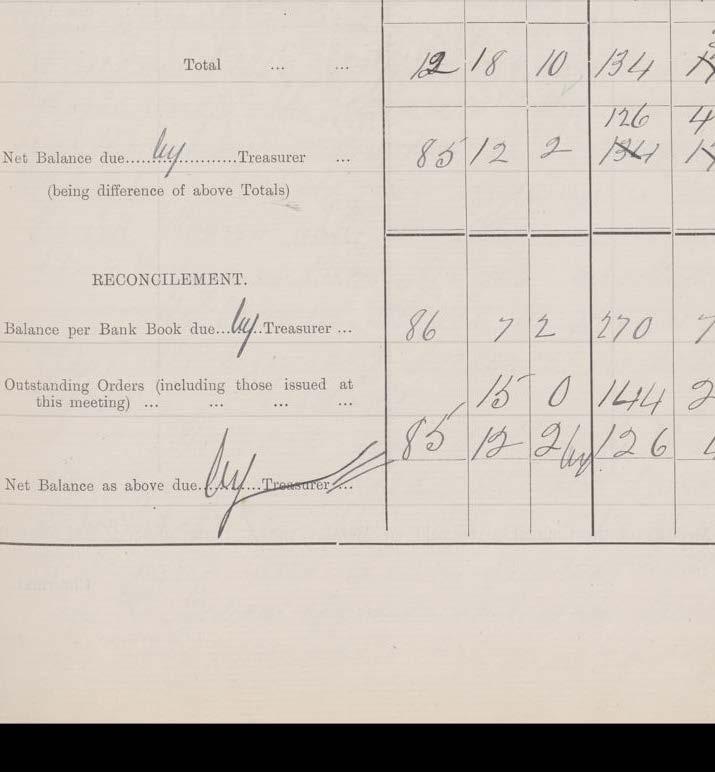 Total ... ... 12 18 10 134
126 4
Net Balance due.....by...........Treasurer ... 85 12 2 134
(being difference of above Totals)
RECONCILEMENT.
Balance per Bank Book due...by..Treasurer ... 86 7 2 270 7
Outstanding Orders (including those issued at
this meeting) ... ... ... ... 15 0 144 2
85 12 2 by 126 4
Net Balance as above due..by...Treasurer ...